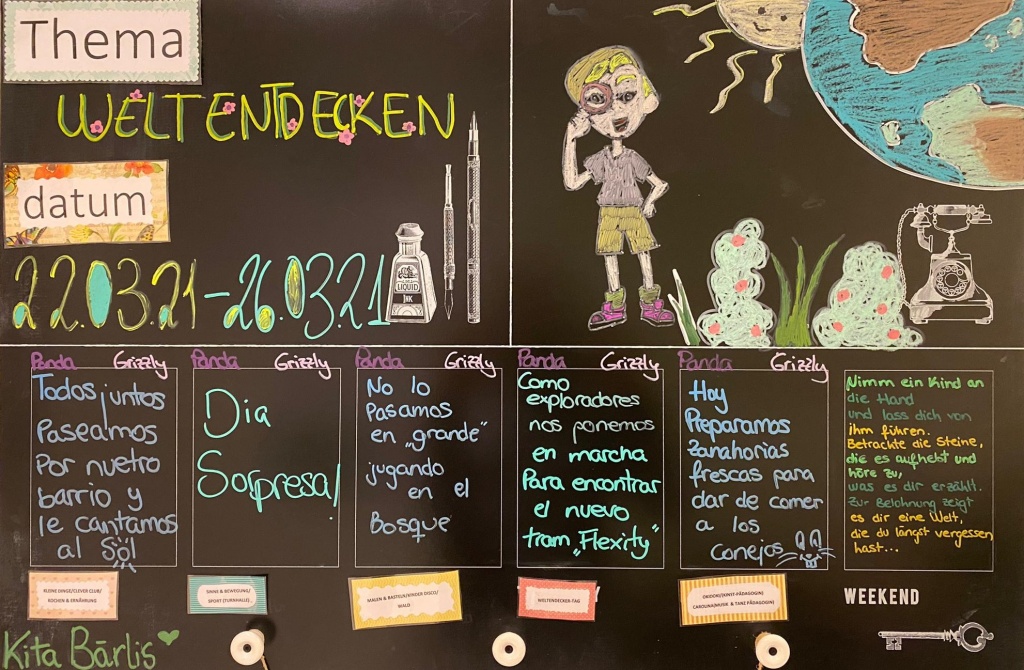 Thema
WELTENTDECKEN
datum
22.03.21-26.03.21
LIQUID
INK
Panda Grizzly
Todos juntos
Paseamos
Por nuetro
barrio y
le cantamos
al Sol
Panda Grizzly
Dia
Sorpresa!
Panda Grizzly
No lo
Pasamos
en „grande"
jugando
en el
Bosque
Panda Grizzly
Como
exploradores
nos ponemos
en marcha
Para encontrar
el nuevo
tram „Flexity"
Panda Grizzly
Hoy
Preparamos
Zanahorias
frescas para
dar de comer
a los
conejos
Nimm ein Kind an
die Hand
und lass dich von
ihm führen.
Betrachte die Steine,
die es aufhebt und
höre zu,
was es dir erzählt.
Zur Belohnung zeigt
es dir eine Welt,
die du längst vergessen
hast...
KLEINE DINGE/CLEVER CLUB/
KOCHEN & ERNÄHRUNG
SINNE & BEWEGUNG/
SPORT (TURNHALLE)
MALEN & BASTELN/KINDER DISCO/
WALD
WELTENTDECKER-TAG
CAROLINA(MUSIK & TANZ PÄDAGOGIN)
WEEKEND
Kita Bärlis